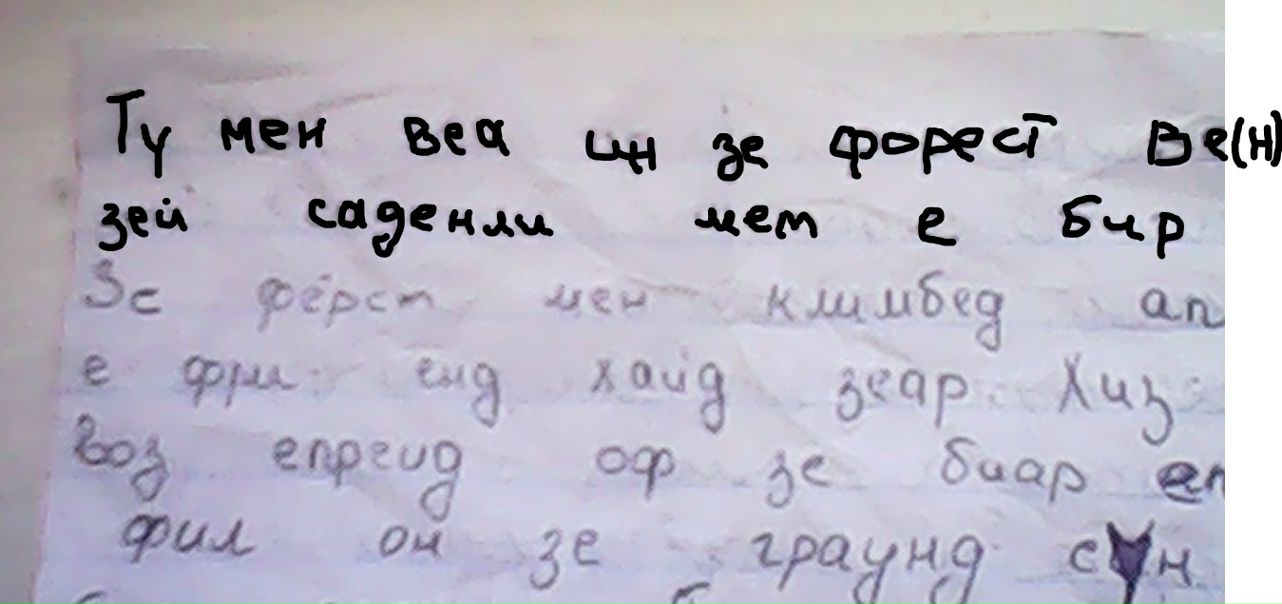 Ту мен веа ин зе форест Ве(н)
зей саденли мет е бир
Зе фёрст мен климбед ап
е фри енд хайд зеар. Хиз
воз епреид оф зе биар ен
фил он зе граунд сун